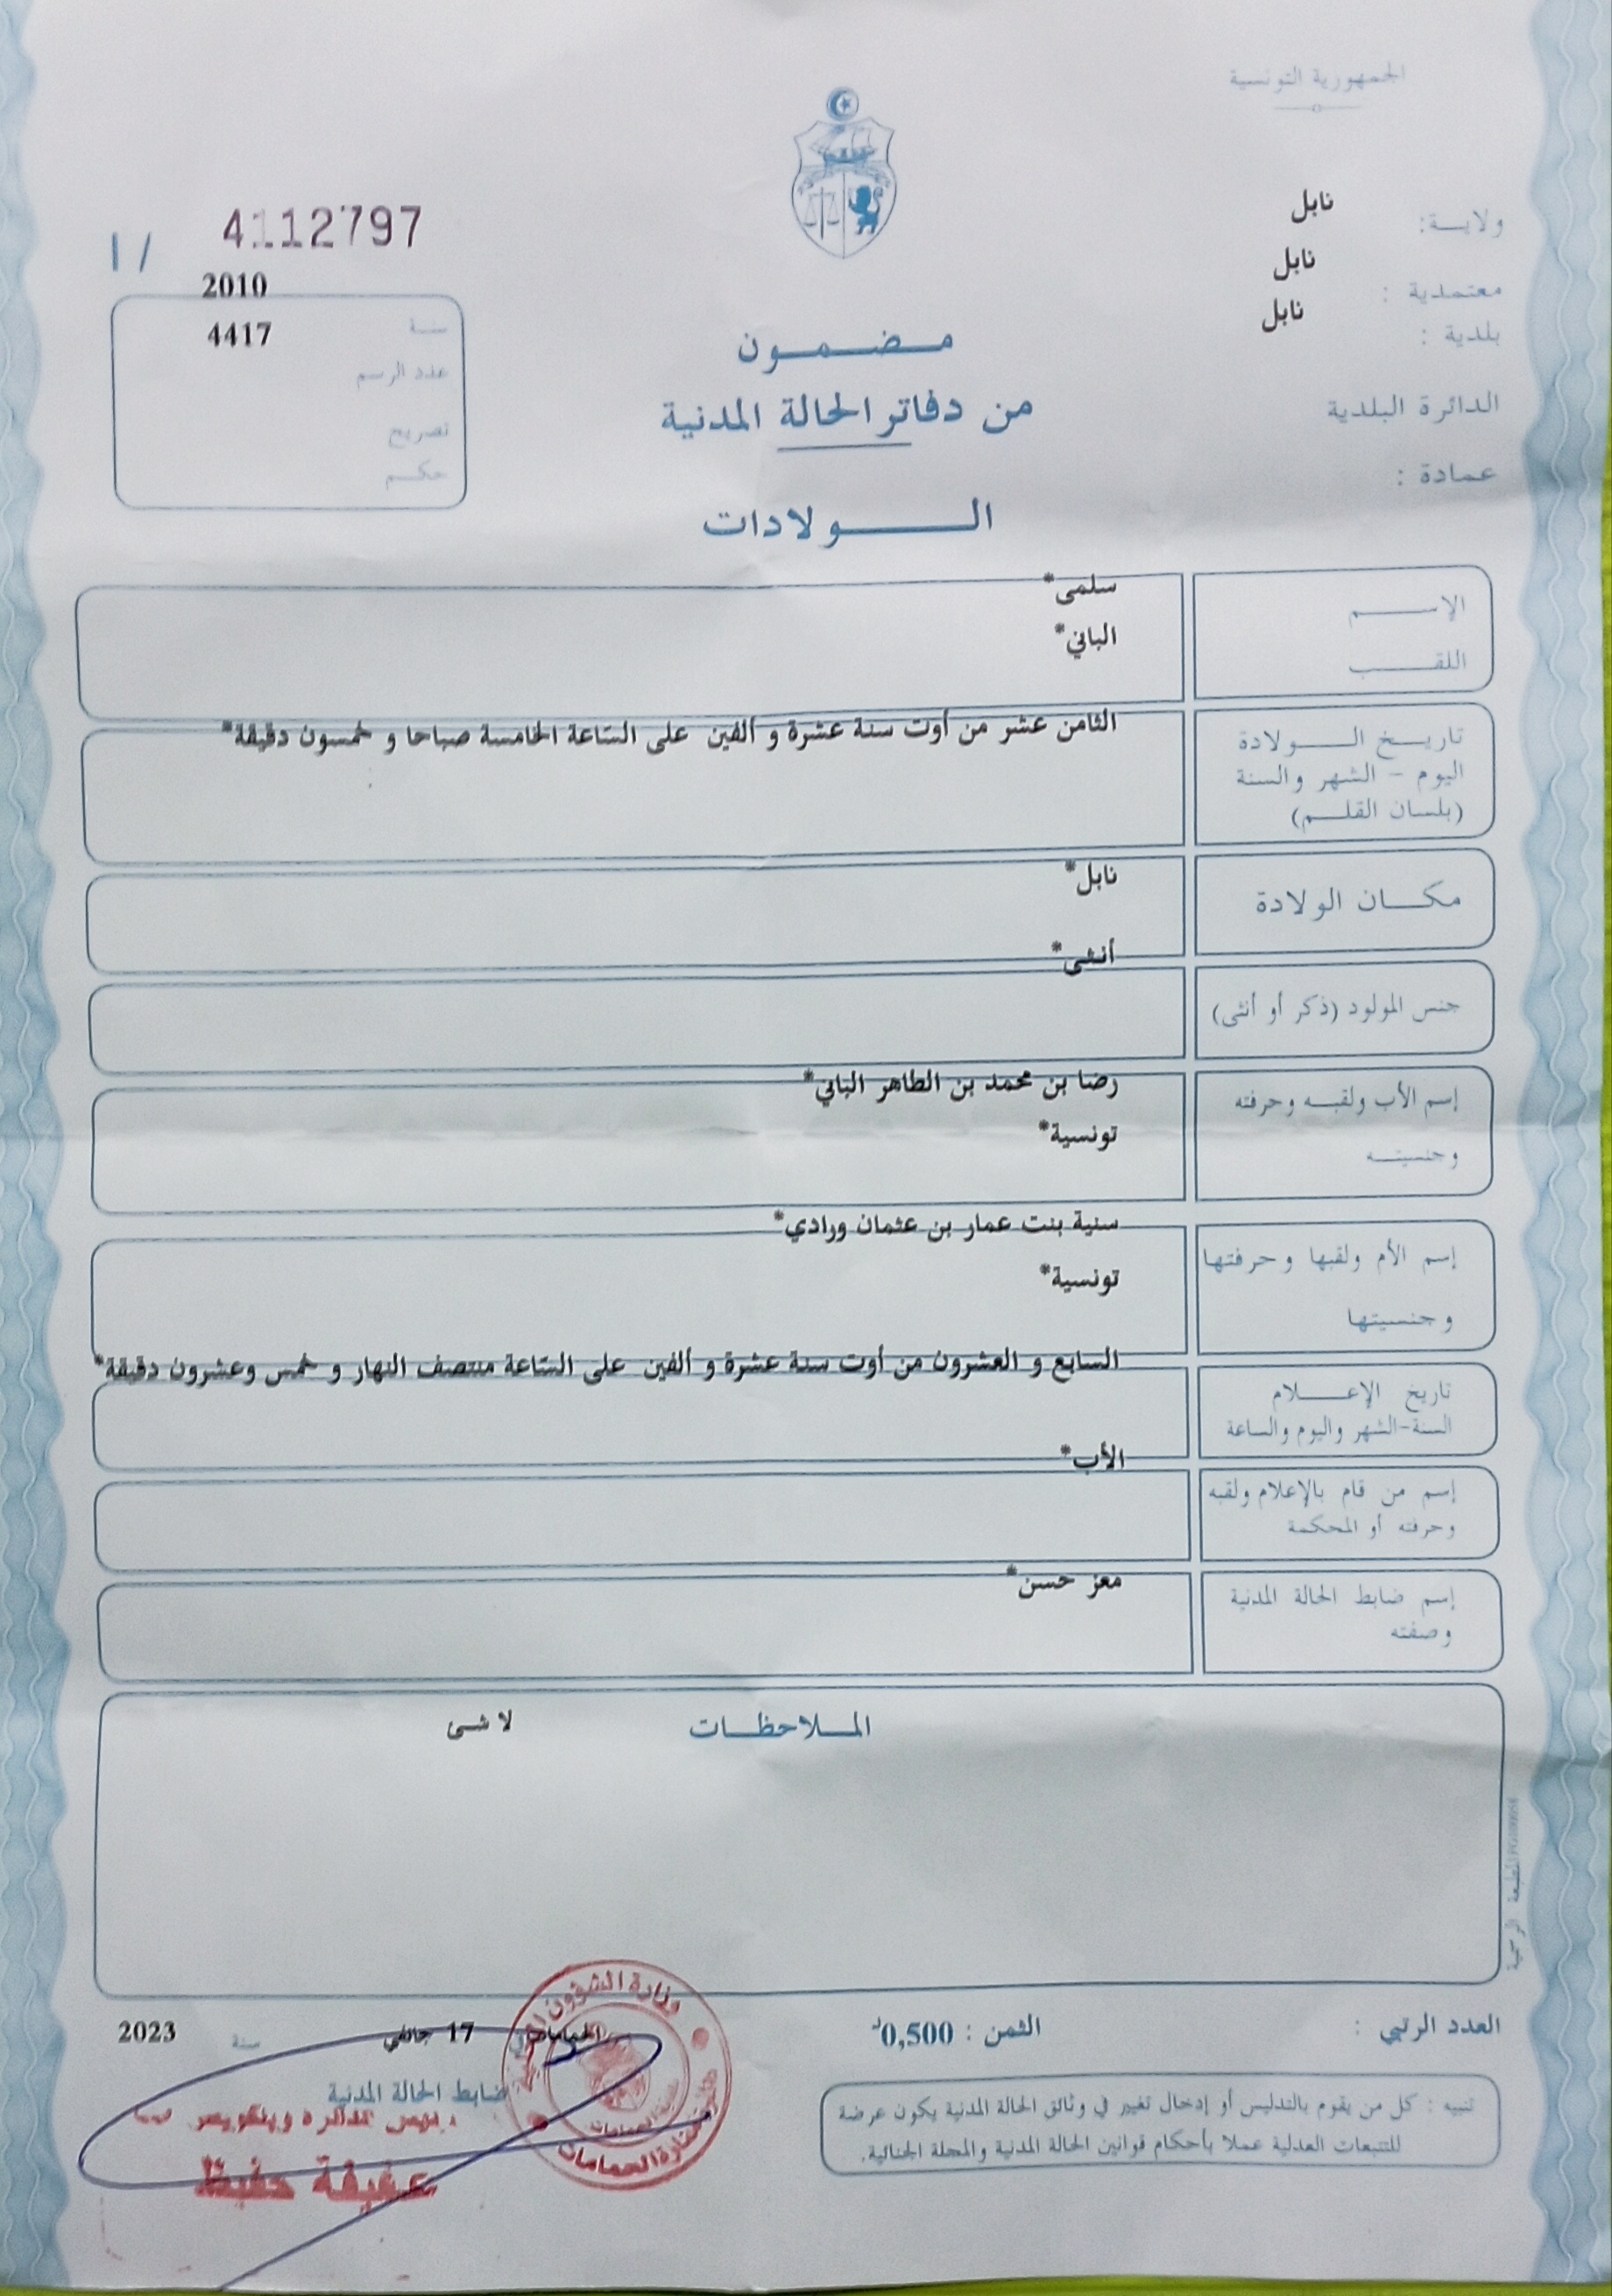 الجمهورية التونسية
ولايـة: نابل
معتمدية : نابل
بلدية : نابل
الدائرة البلدية
عمادة :
I / 4112797
سنة 2010
عدد الرسم 4417
تصريح
حكم
مضمون
من دفاتر الحالة المدنية
الولادات
الإسم سلمى*
اللقب الباني*
تاريخ الولادة الثامن عشر من أوت سنة عشرة و ألفين على السّاعة الخامسة صباحا و خمسون دقيقة*
اليوم - الشهر والسنة
(بلسان القلم)
مكان الولادة نابل*
جنس المولود (ذكر أو أنثى) أنثى*
إسم الأب ولقبه وحرفته رضا بن محمد بن الطاهر الباني*
وجنسيته تونسية*
إسم الأم ولقبها وحرفتها سنية بنت عمار بن عثمان ورادي*
وجنسيتها تونسية*
تاريخ الإعلام السابع و العشرون من أوت سنة عشرة و ألفين على السّاعة منتصف النهار و خمس وعشرون دقيقة*
السنة-الشهر واليوم والساعة
إسم من قام بالإعلام ولقبه الأب*
وحرفته أو المحكمة
إسم ضابط الحالة المدنية معز حسن*
وصفته
الملاحظات لا شى
المطبعة الرسمية
العدد الرتبي :
الثمن : 0,500د
الحمامات 17 جانفي سنة 2023
ضابط الحالة المدنية
عفيفة حفيظ
وزارة الشؤون المحلية
الحمامات
تنبيه : كل من يقوم بالتدليس أو إدخال تغيير في وثائق الحالة المدنية يكون عرضة
للتتبعات العدلية عملا بأحكام قوانين الحالة المدنية والمجلة الجنائية.